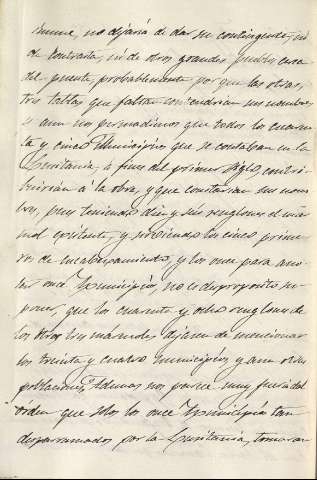 inmune, no dejaria de dar su contingente, ni
de contrata, ni de otros grandes pueblos cerca
del puente, probablemente por que las otras,
tres tablas que faltan contendrian sus nombres,
y aun nos persuadimos que todos los cuaren
ta y cinco Municipios que se contaban en la
Lusitania, á fines del primer siglo, contri-
buirian á la obra, y que constarian sus nom
bres, pues teniendo diez y seis renglones el már
mol existente, y sirviendo los cinco prime-
ros de encabezamiento, y los once para ano-
tar once Municipios, no es desproposito su-
poner, que los cuarenta y ocho renglones de
los otros tres mármoles dejasen de mencionar
los treinta y cuatro municipios, y aun otras
poblaciones. Ademas nos parece muy fuera del
órden que solos los once Municipios tan
desparramados por la Lusitania, tomaran